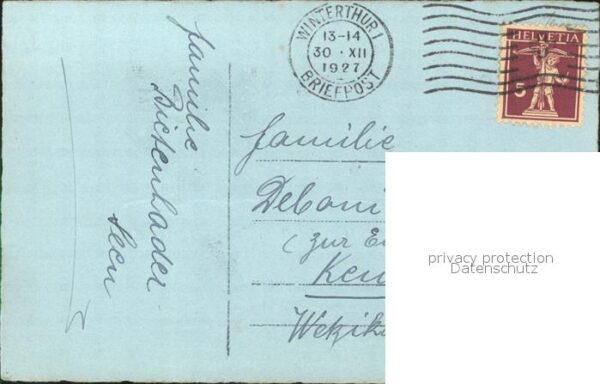 WINTERTHUR 1
13-14
30 · XII
1927
BRIEFPOST
HELVETIA
5
Familie
Seen
Familie
Deboni
(zur
Wetzik
privacy protection
Datenschutz